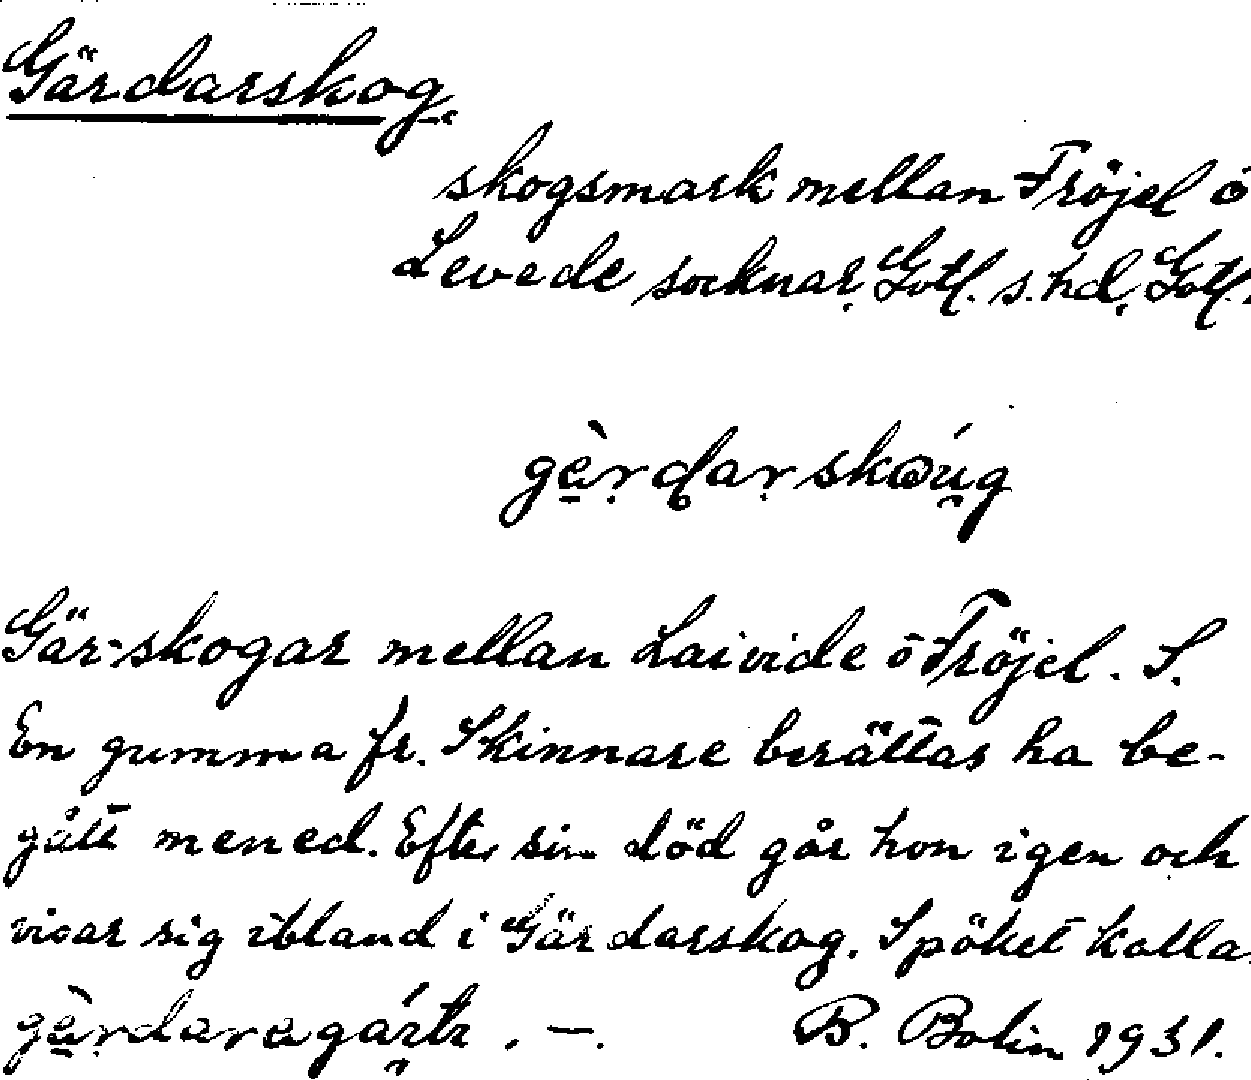 Gärdarskog.
skogsmark mellan Fröjel o
Levede socknar, Gotl. s. hd, Gotl.
gärdarskoug
Gär-skogar mellan Laivide o Fröjel. S.
En gumma fr. Skinnare berättas ha be-
gått mened. Efter sin död går hon igen och
visar sig ibland i Gärdarskog. Spöket kalla
. —. B. Bolin 1931.